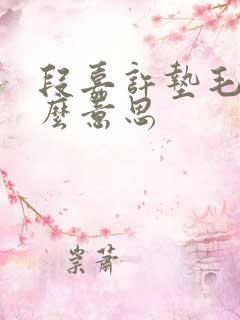 段嘉許墊毛
麼意思
崇蕭